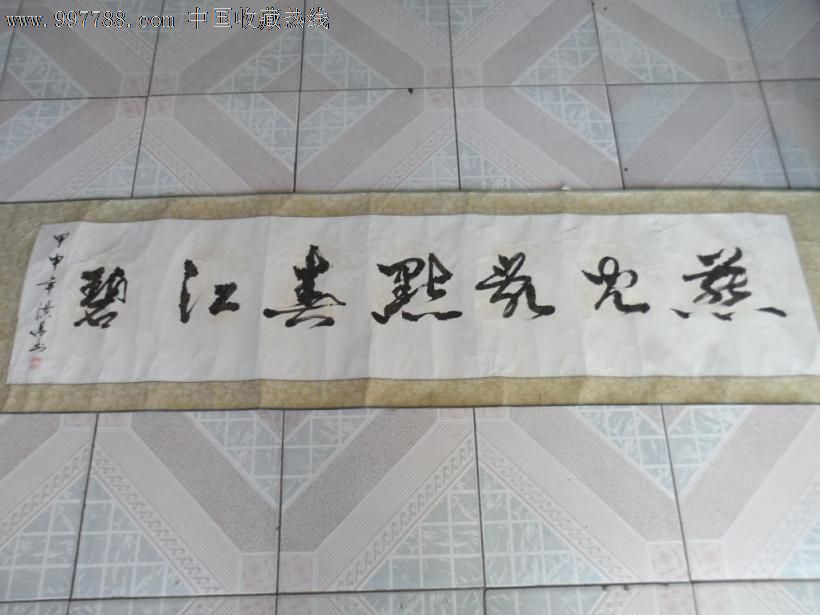 www.997788.com 中国收藏热线
燕児點春江碧
甲申年